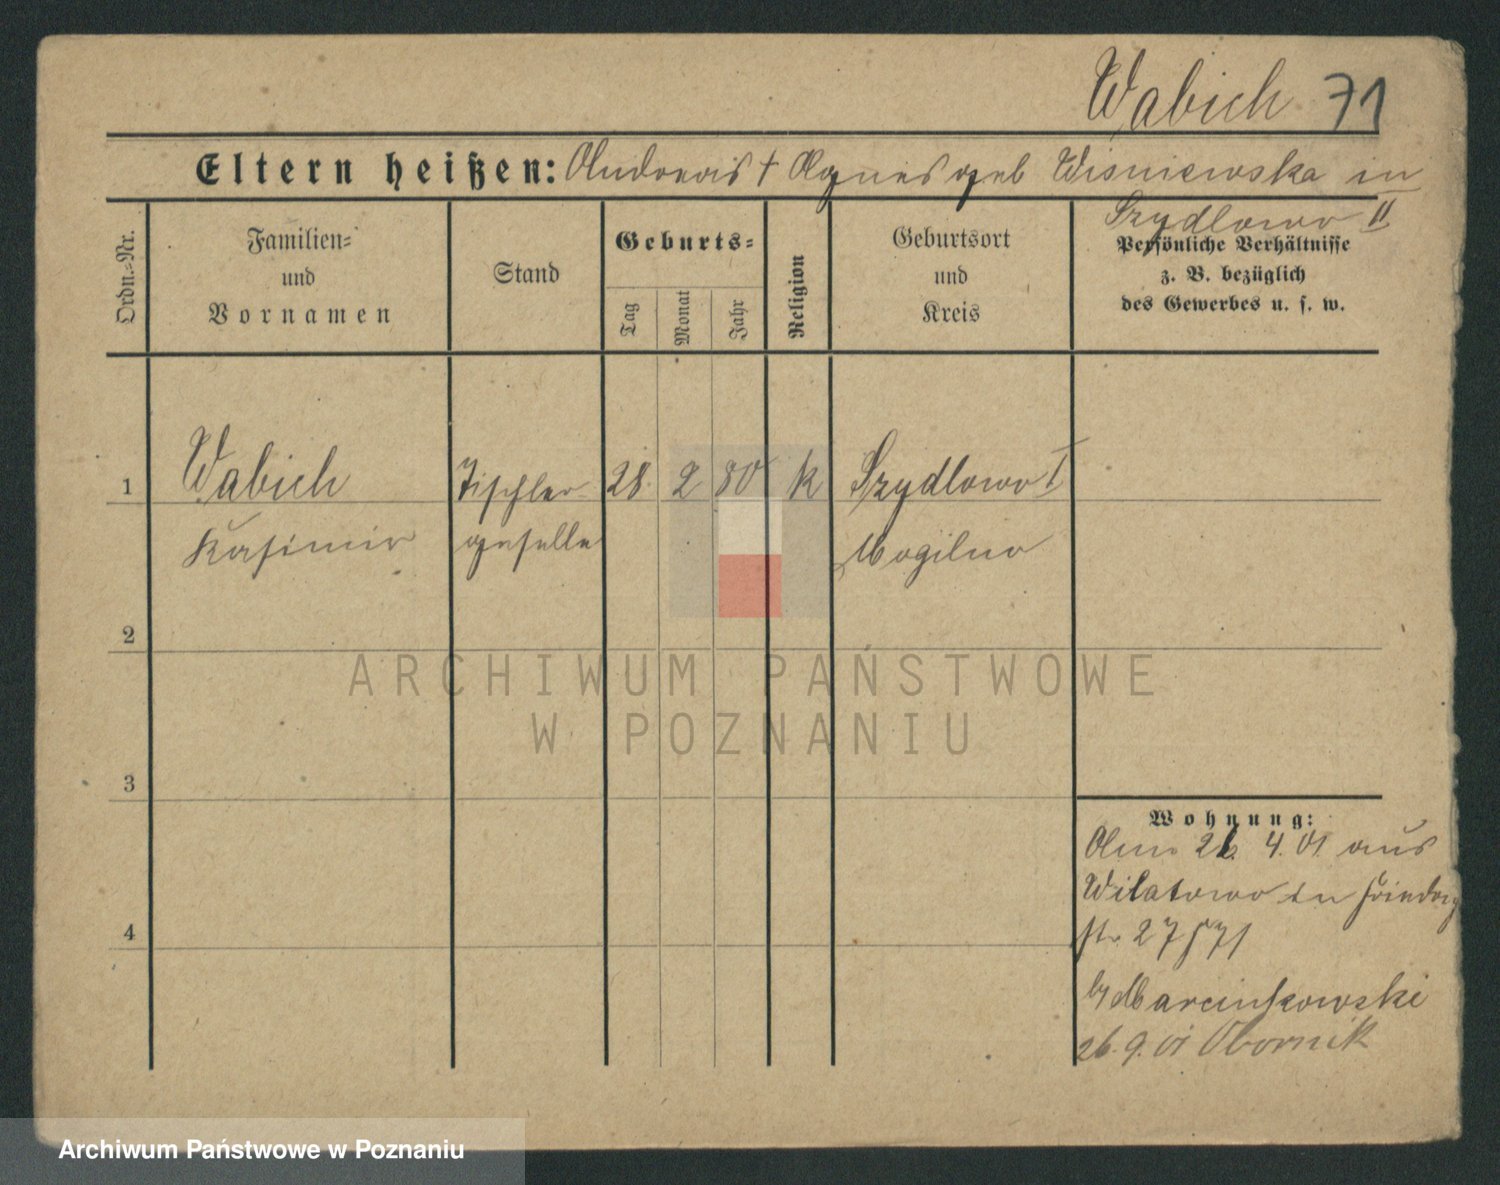 Wabich 71
Eltern heißen: Andreas † Agnes geb Wisniewska in
Szydlowo II
Ordn.-Nr.
Familien-
und
Vornamen
Stand
Geburts-
Tag
Monat
Jahr
Religion
Geburtsort
und
Kreis
Persönliche Verhältnisse
z. B. bezüglich
des Gewerbes u. s. w.
1 Wabich Tischler 28. 2 80 k Szydlowo I
Kasimir geselle Mogilno
2
3
4
Wohnung:
26. 4. 01 aus
Wilatowo in
str. 27
b/ Marcinkowski
26. 9. 01 Obornik
ARCHIWUM PAŃSTWOWE
W POZNANIU
Archiwum Państwowe w Poznaniu